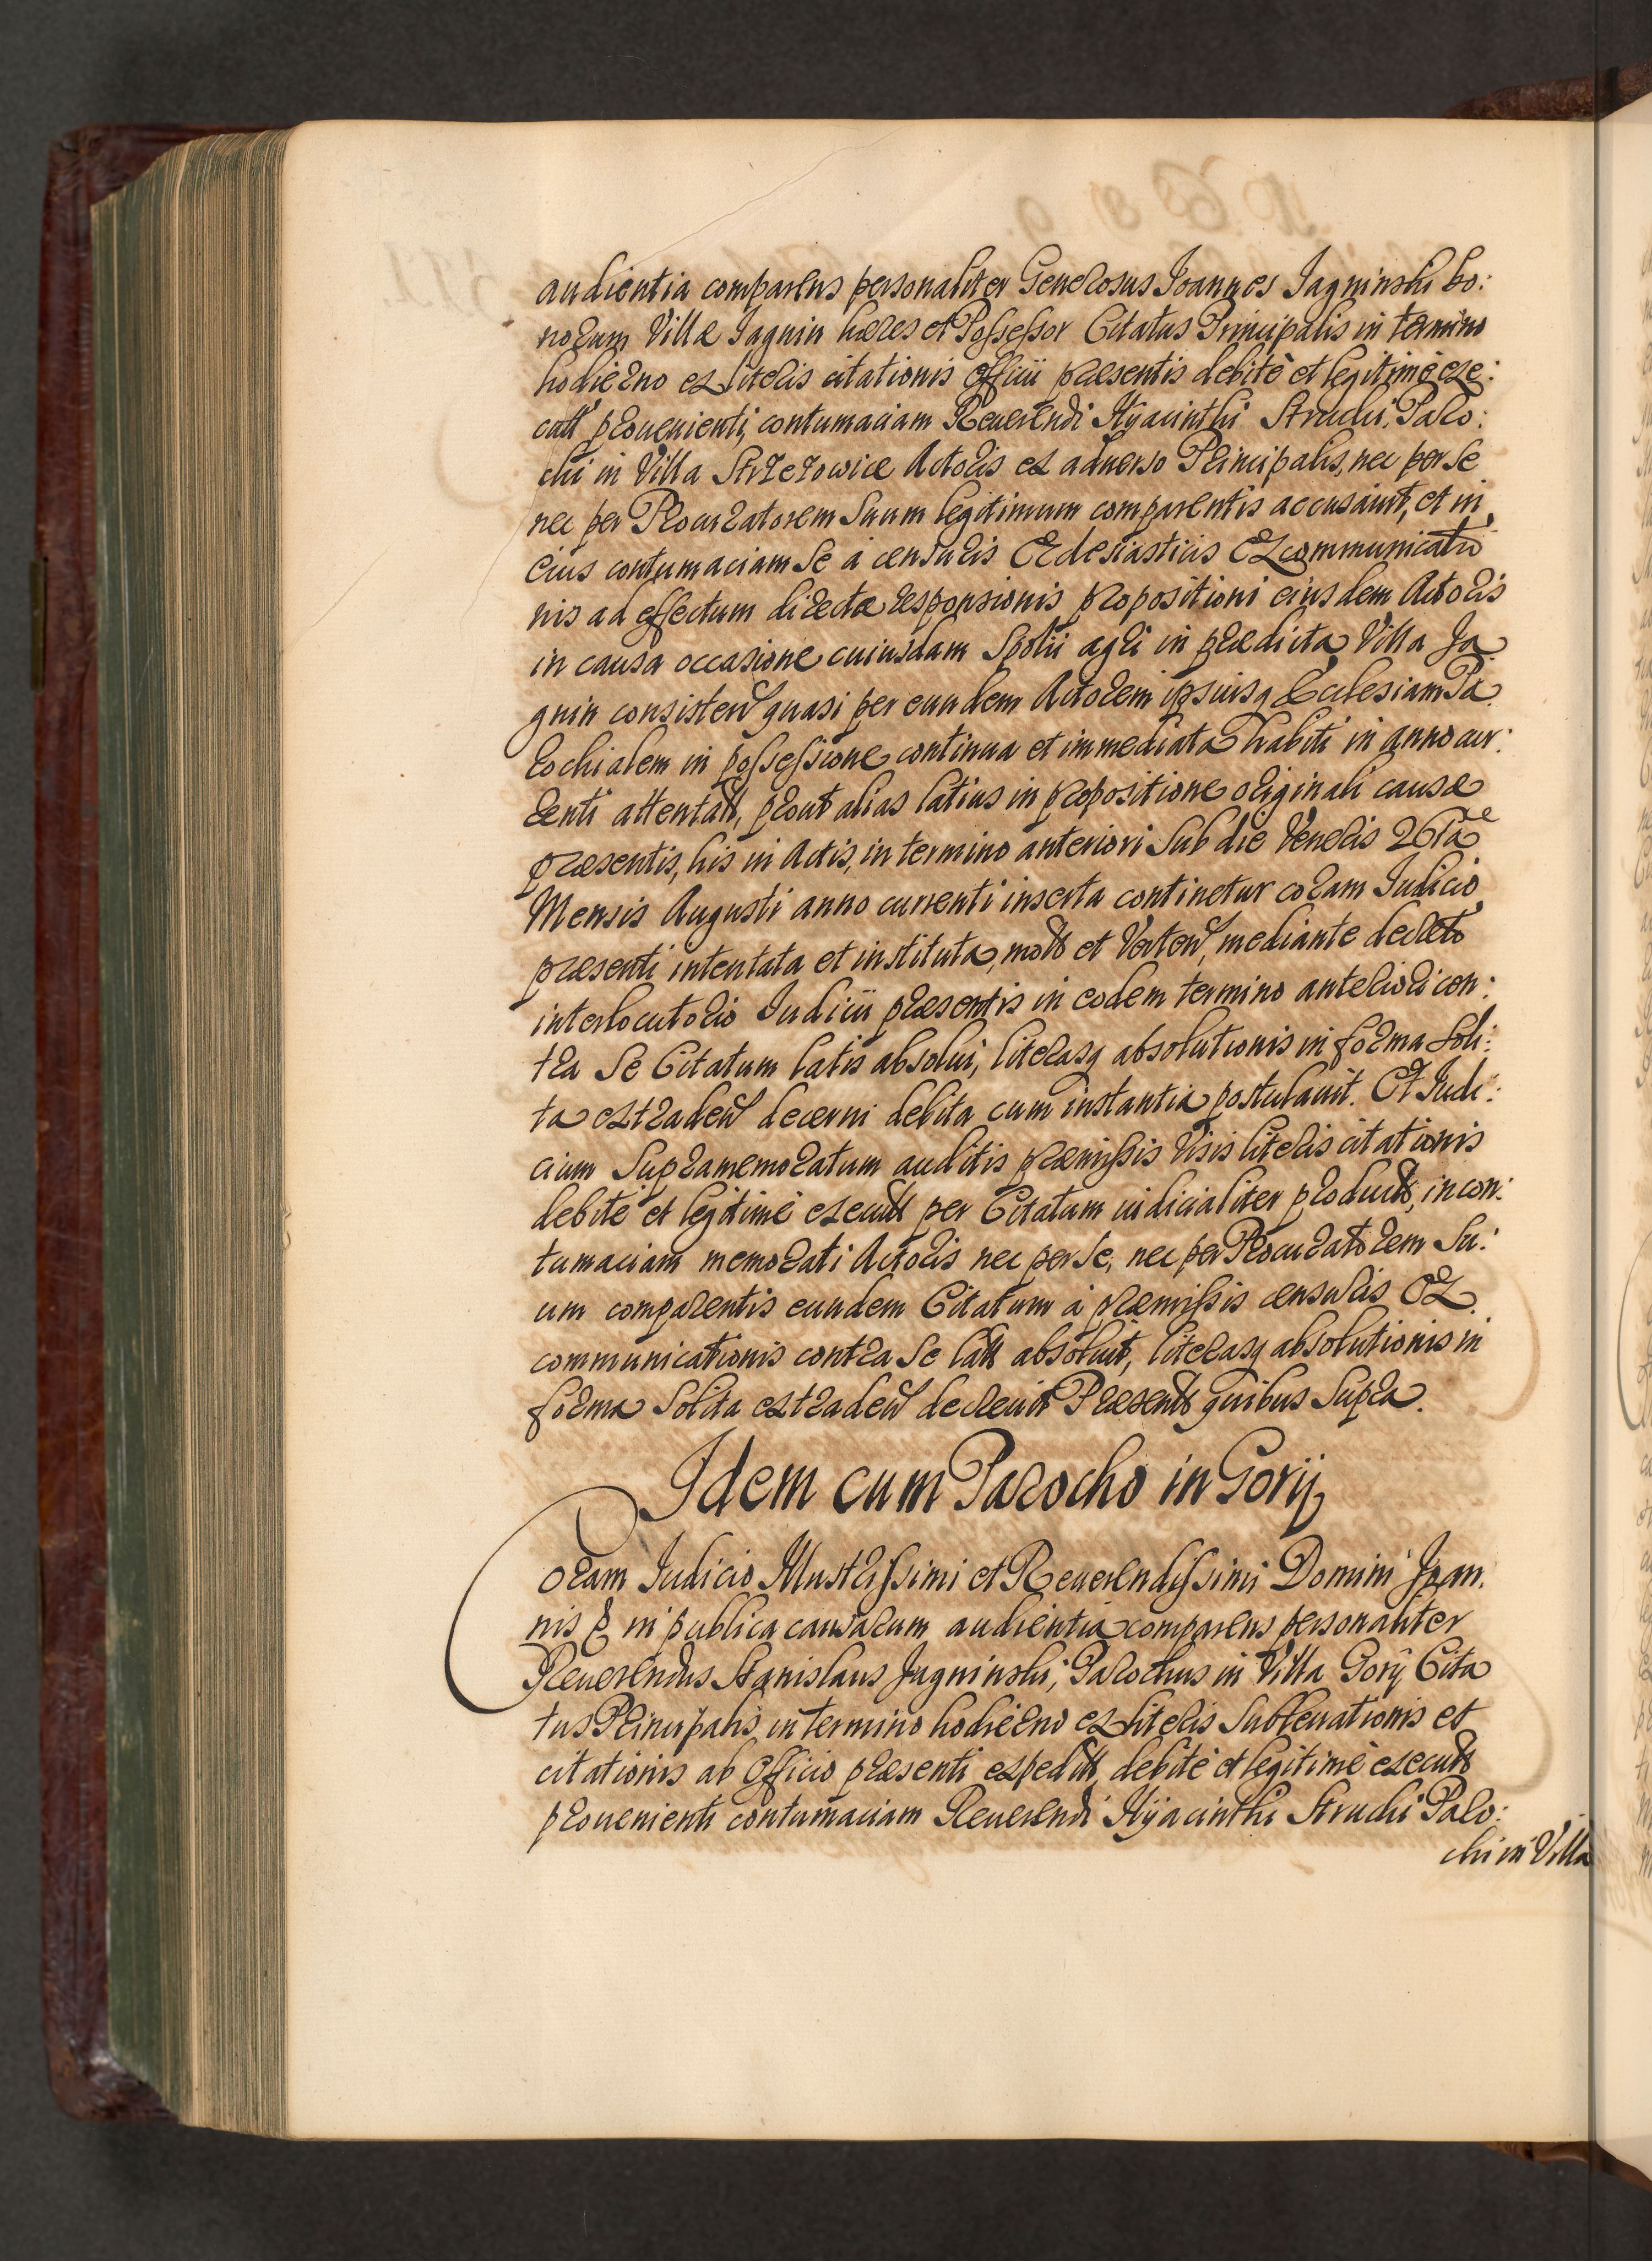 audientia comparens personaliter Generosus Ioannes Jagninski bo:
norum Villæ Jagnin hæres et Possessor Citatus Principalis in termino
hodierno ex literis citationis officii præsentis debitè et legitimè exe:
cutt prouenienti, contumaciam Reuerendi Hyacinthi Struchi, Paro:
chi in Villa Strzezowice Actoris ex aduerso Principalis, nec per Se
nec per Procuratorem Suum legitimum comparentis accusauit, et in
eius contumaciam Se à censuris Ecclesiasticis Excommunicatio
nis ad effectum directæ responsionis propositioni eiusdem Actoris
in causa occasione cuiusdam Spolii agri in prædicta Villa Ja
gnin consisten quasi per eundem Actorem ipsiusq Ecclesiam Pa
rochialem in possessione continua et immediata habiti in anno cur:
renti attentatt, prout alias latius in propositione originali causæ
præsentis, his in Actis, in termino anteriori Sub die Veneris 26ta
Mensis Augusti anno currenti inserta continetur coram Iudicio
præsenti intentata et instituta, mott et Verten, mediante decreto
interlocutorio Iudicii præsentis in eodem termino anteriori con:
tra Se Citatum latis absolui, literasq absolutionis in forma Soli:
ta extraden decerni debita cum instantia postulauit. Et Iudi:
cium Supramemoratum auditis præmissis Visis literis citationis
debitè et legitimè executt per Citatum iudicialiter productt, in con:
tumaciam memorati Actoris nec per Se, nec per Procuratorem Su:
um comparentis eundem Citatum à præmissis censuris Ex
communicationis contra Se latt absoluit, literasq absolutionis in
forma Solita extraden decreuit Præsentt quibus Supra.
Idem cum Parocho in Gorij
Coram Iudicio Illustrissimi et Reuerendissimi Domini Joan:
nis & in publica causarum audientia comparens personaliter
Reuerendus Stanislaus Jagninski, Parochus in Villa Gorij Cita
tus Principalis in termino hodierno ex literis Subleuationis et
citationis ab Officio præsenti expeditt, debitè et legitimè executt
prouenienti contumaciam Reuerendi Hyacinthi Struchi Paro:
chi in Villa